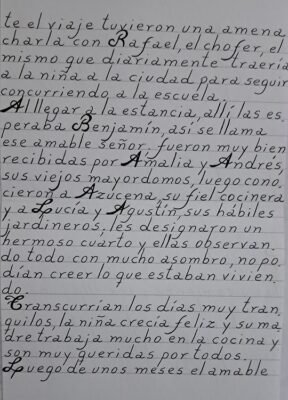 te el viaje tuvieron una amena
charla con Rafael, el chofer, el
mismo que diariamente traería
a la niña a la ciudad para seguir
concurriendo a la escuela.
Al llegar a la estancia, allí las es.
peraba Benjamín, así se llama
ese amable señor. fueron muy bien
recibidas por Amalia y Andrés,
sus viejos mayordomos, luego cono.
cieron a Azucena, su fiel cocinera
y a Lucía y Agustín, sus hábiles
jardineros, les designaron un
hermoso cuarto y ellas observan.
do todo con mucho asombro, no po.
dían creer lo que estaban vivien.
do.
Transcurrían los días muy tran.
quilos, la niña crecía feliz y su ma.
dre trabaja mucho en la cocina y
son muy queridas por todos.
Luego de unos meses el amable